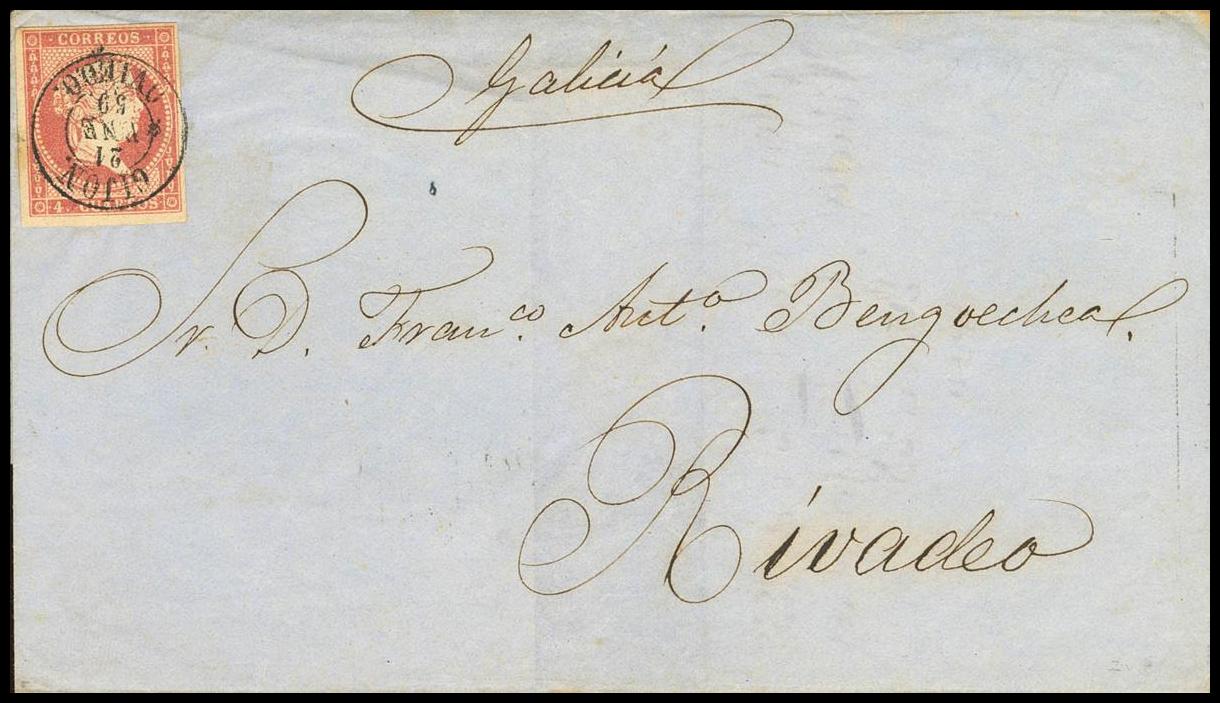 CORREOS
GIJON
21
ENE
59
OVIEDO
4. CORREOS
Galicia
Sr. D. Franco. Anto. Bengoechea.
Rivadeo